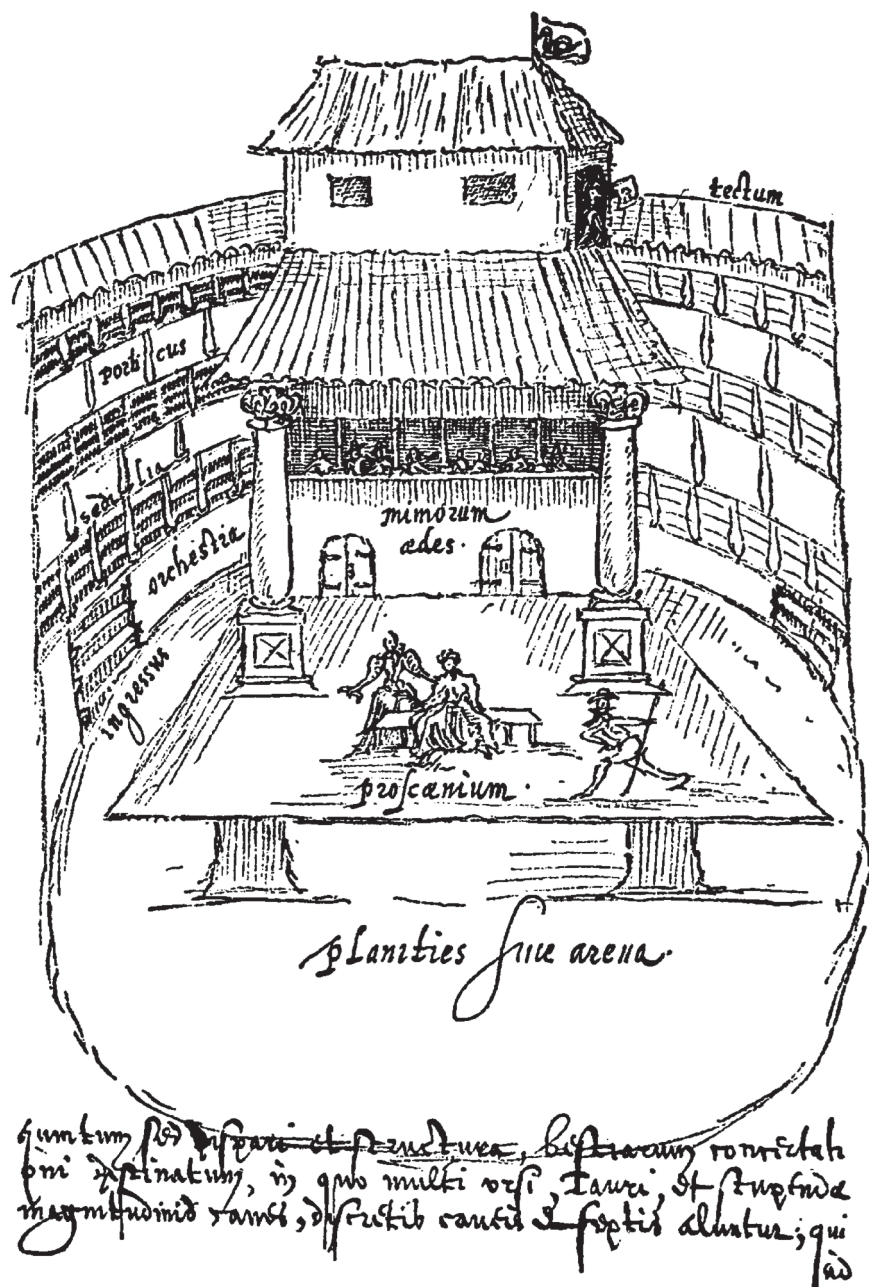 tectum
porticus
sedilia
orchestra
mimorum
ædes.
ingressus
proscænium.
planities sive arena.
quintum sed dispari et structura, bestiarum concertati
oni destinatum, in quo multi ursi, Tauri, et stupendæ
magnitudinis canes, discretis caueis & septis aluntur, qui
ad